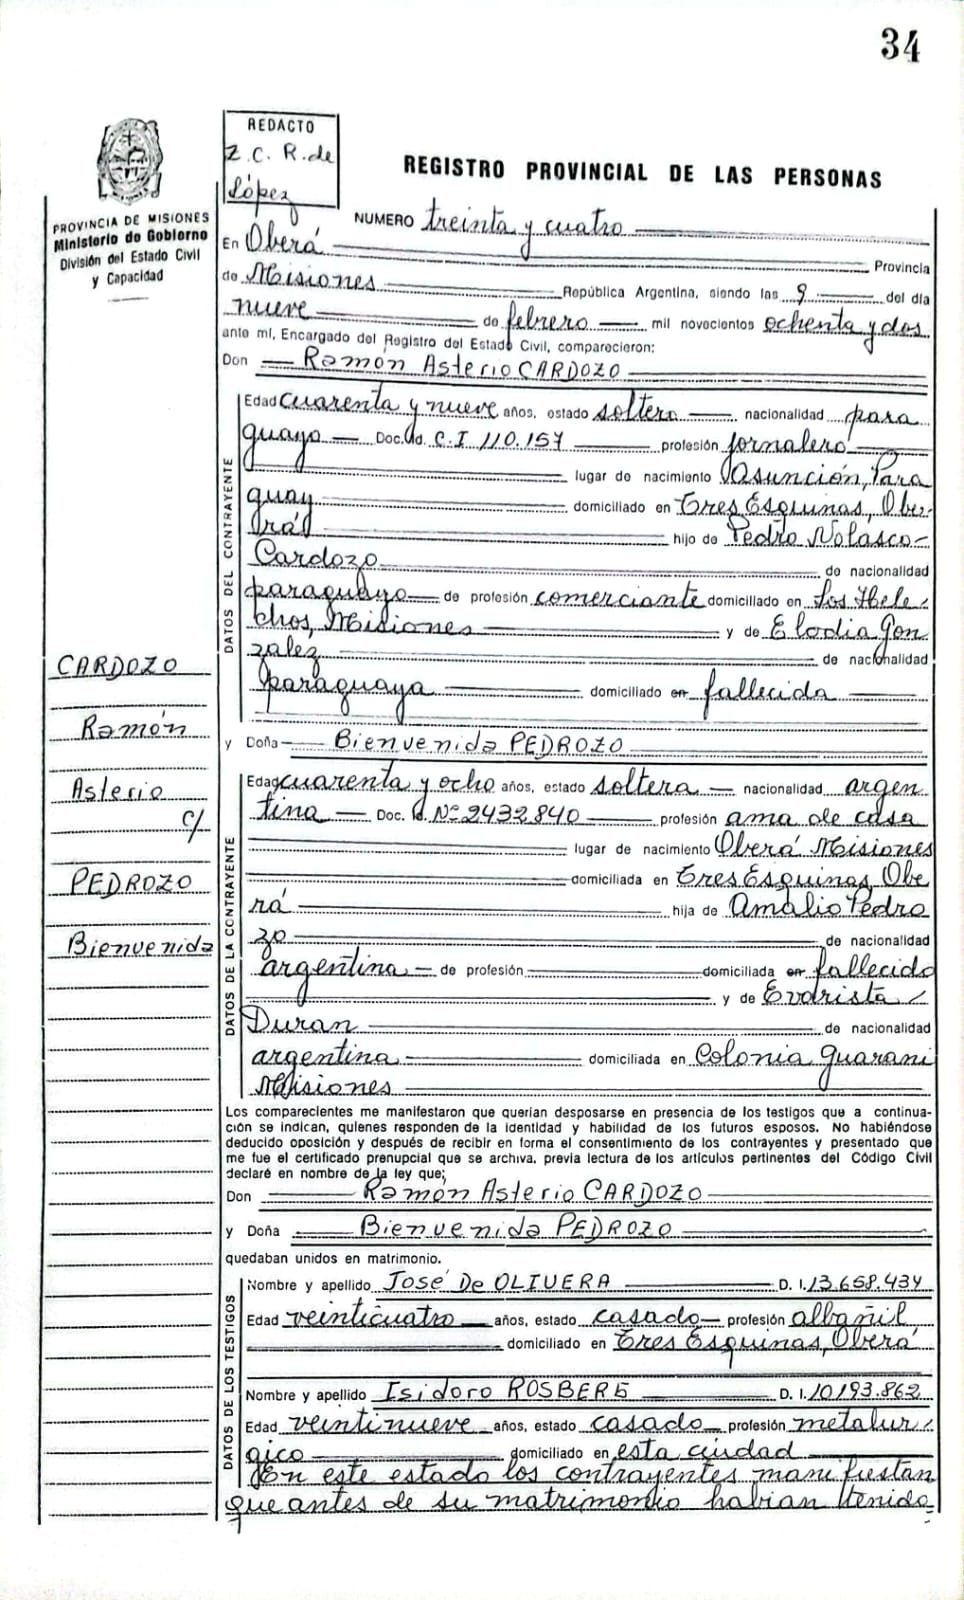 34
REDACTO
Z. C. R. de
López
REGISTRO PROVINCIAL DE LAS PERSONAS
PROVINCIA DE MISIONES
Ministerio de Gobierno
División del Estado Civil
y Capacidad
NUMERO treinta y cuatro
En Oberá Provincia
de Misiones República Argentina, siendo las 9 del día
nueve de febrero mil novecientos ochenta y dos
ante mí, Encargado del Registro del Estado Civil, comparecieron:
Don Ramón Asterio CARDOZO
DATOS DEL CONTRAYENTE
Edad cuarenta y nueve años, estado soltero nacionalidad para
guayo Doc. Id. C.I 110.157 profesión jornalero
lugar de nacimiento Asunción, Para
guay domiciliado en Tres Esquinas, Obe-
rá hijo de Pedro Nolasco
Cardozo de nacionalidad
paraguayo de profesión comerciante domiciliado en Los Hele
chos, Misiones y de Elodia Gon
zalez de nacionalidad
paraguaya domiciliado en fallecida
y Doña Bienvenida PEDROZO
DATOS DE LA CONTRAYENTE
Edad cuarenta y ocho años, estado soltera nacionalidad argen
tina Doc. Id. Nº 2432840 profesión ama de casa
lugar de nacimiento Oberá Misiones
domiciliada en Tres Esquinas, Obe
rá hija de Amalio Pedro
zo de nacionalidad
argentina de profesión domiciliada en fallecido
y de Evarista
Duran de nacionalidad
argentina domiciliada en Colonia Guarani
Misiones
CARDOZO
Ramón
Asterio
c/
PEDROZO
Bienvenida
Los comparecientes me manifestaron que querían desposarse en presencia de los testigos que a continua-
ción se indican, quienes responden de la identidad y habilidad de los futuros esposos. No habiéndose
deducido oposición y después de recibir en forma el consentimiento de los contrayentes y presentado que
me fue el certificado prenupcial que se archiva, previa lectura de los artículos pertinentes del Código Civil
declaré en nombre de la ley que;
Don Ramón Asterio CARDOZO
y Doña Bienvenida PEDROZO
quedaban unidos en matrimonio.
DATOS DE LOS TESTIGOS
Nombre y apellido José De OLIVERA D. I. 13.658.434
Edad veinticuatro años, estado casado profesión albañil
domiciliado en Tres Esquinas, Oberá
Nombre y apellido Isidoro ROSBERE D. I. 10193.862
Edad veintinueve años, estado casado profesión metalur
gico domiciliado en esta ciudad
En este estado los contrayentes manifiestan
que antes de su matrimonio habian tenido